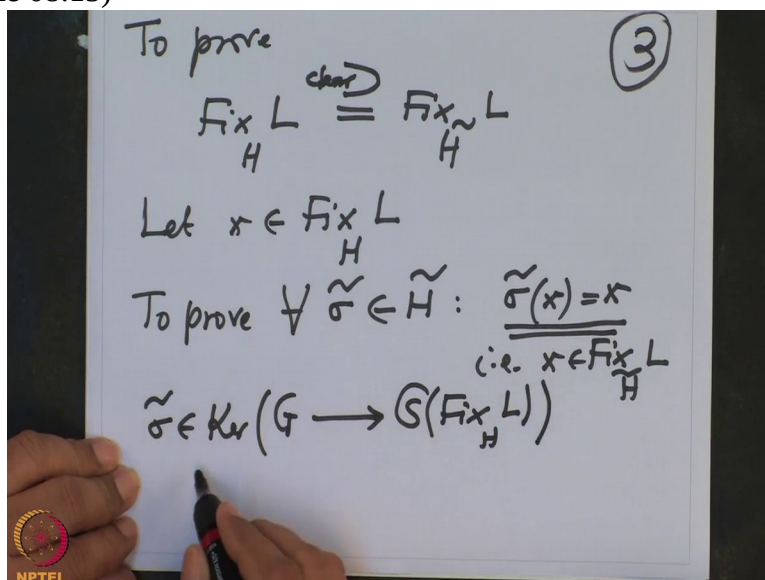 To prove
③
clear ⊃
Fix_H L = Fix_H̃ L
Let x ∈ Fix_H L
To prove ∀ σ̃ ∈ H̃ : σ̃(x) = x
i.e. x ∈ Fix_H̃ L
σ̃ ∈ Ker (G ⟶ 𝔖(Fix_H L))
NPTEL